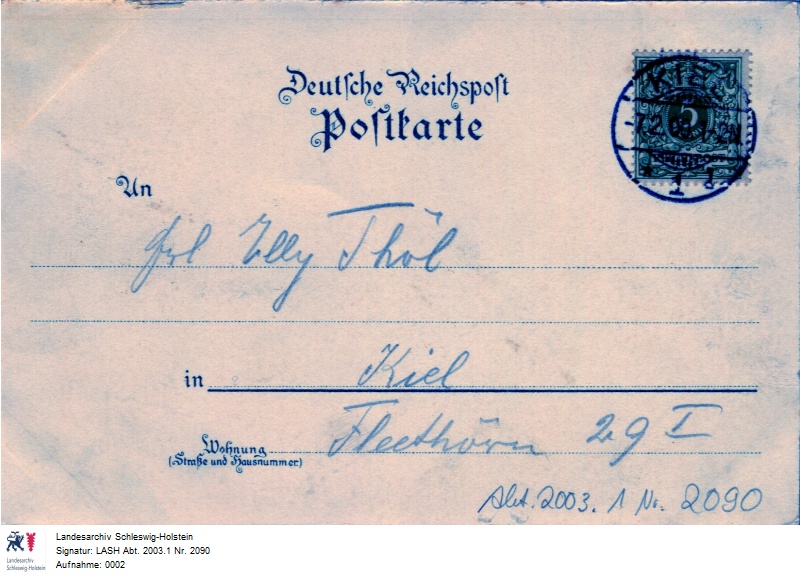 Deutsche Reichspost
Postkarte
KIEL
5
1
An
Frl Elly Thöl
in Kiel
Wohnung
(Straße und Hausnummer)
Fleethörn 29 I
Abt. 2003. 1 Nr. 2090
Landesarchiv
Schleswig-Holstein
Landesarchiv Schleswig-Holstein
Signatur: LASH Abt. 2003.1 Nr. 2090
Aufnahme: 0002